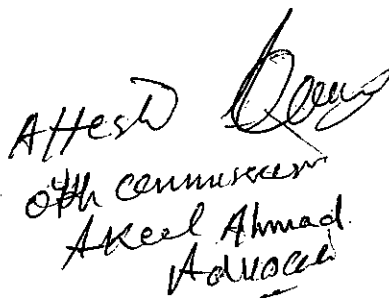 Attestd
oath commissioner
Akeel Ahmad
Advocate